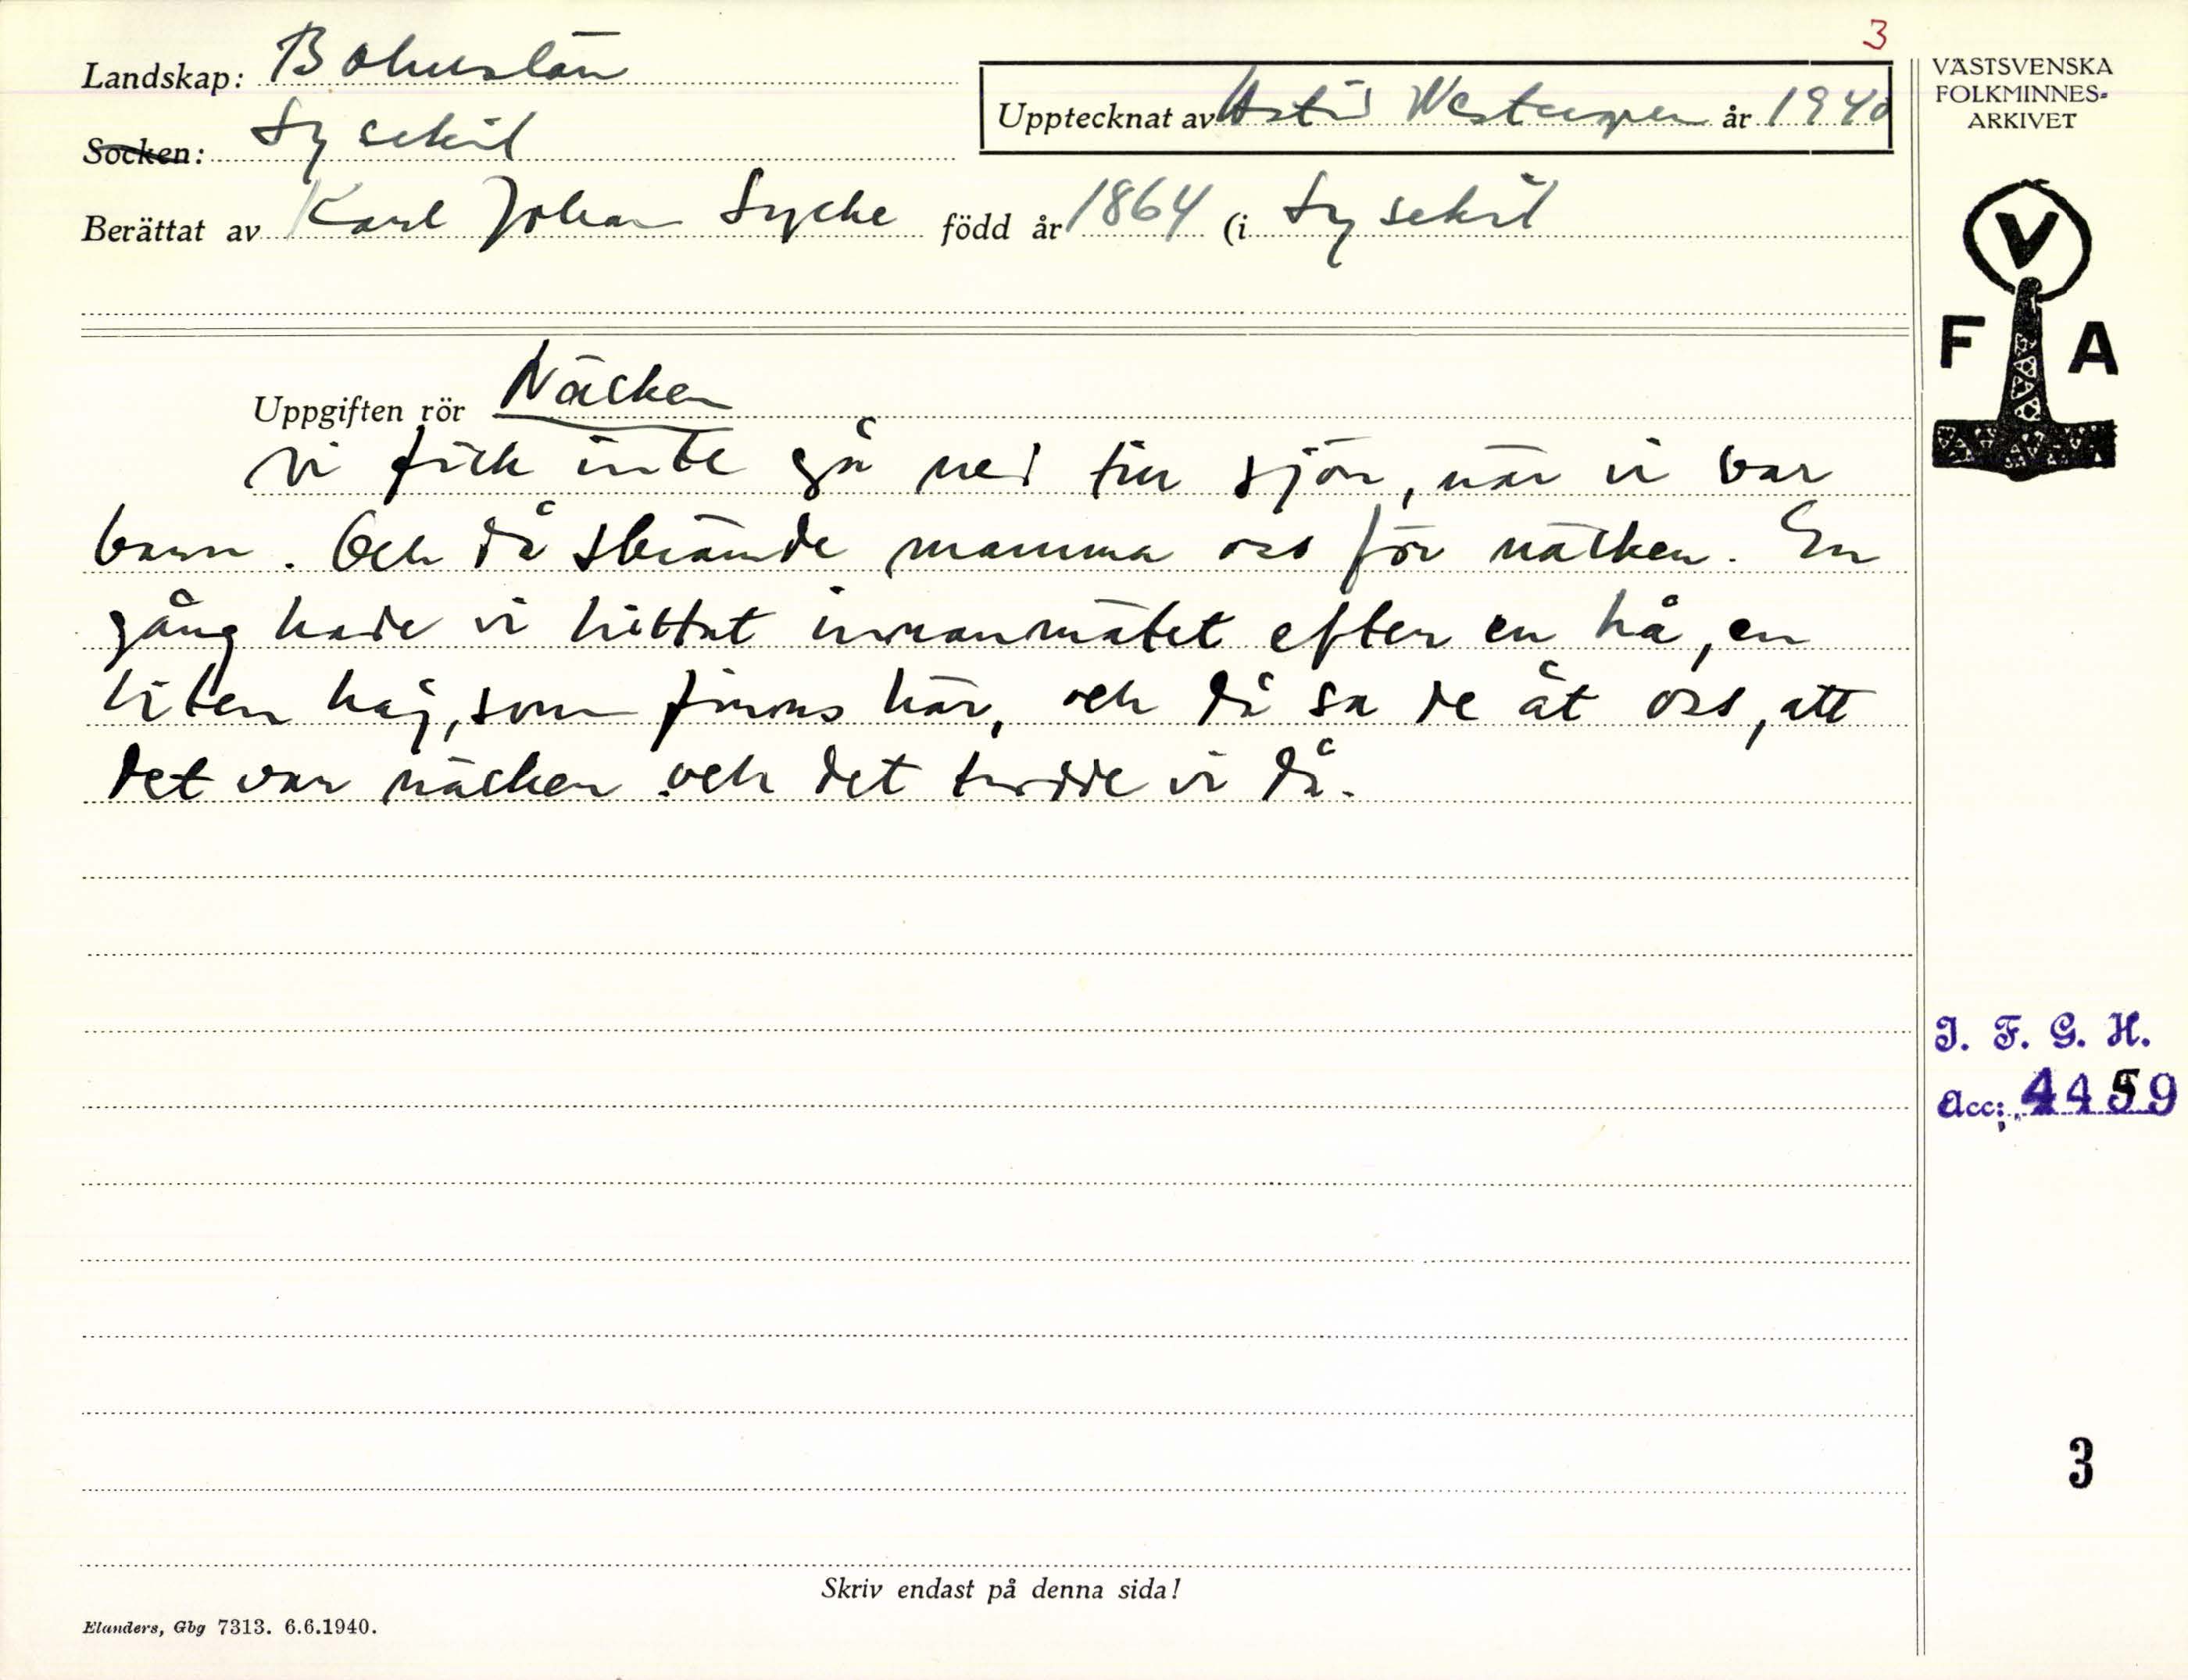 3
Landskap: Bohuslän
Upptecknat av Astrid Westergren år 1940
Socken: Lysekil
Berättat av Karl Johan Lycke född år 1864 (i Lysekil
VÄSTSVENSKA
FOLKMINNES-
ARKIVET
V
F A
Uppgiften rör Näcken
Vi fick inte gå ned till sjön, när vi var
barn. Och då skrämde mamma oss för näcken. En
gång hade vi hittat innanmätet efter en hå, en
liten haj, som finns här, och då sa de åt oss, att
det var näcken och det trodde vi då.
I. F. G. H.
Acc: 4459
3
Skriv endast på denna sida!
Elanders, Gbg 7313. 6.6.1940.